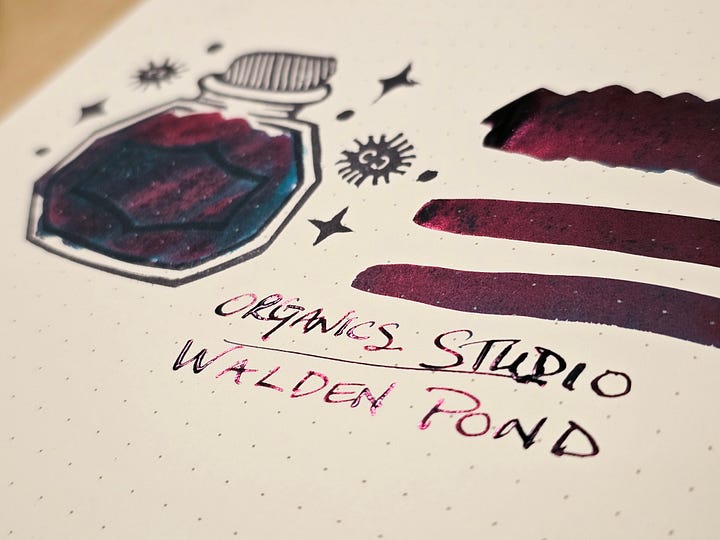 ORGANICS STUDIO
WALDEN POND